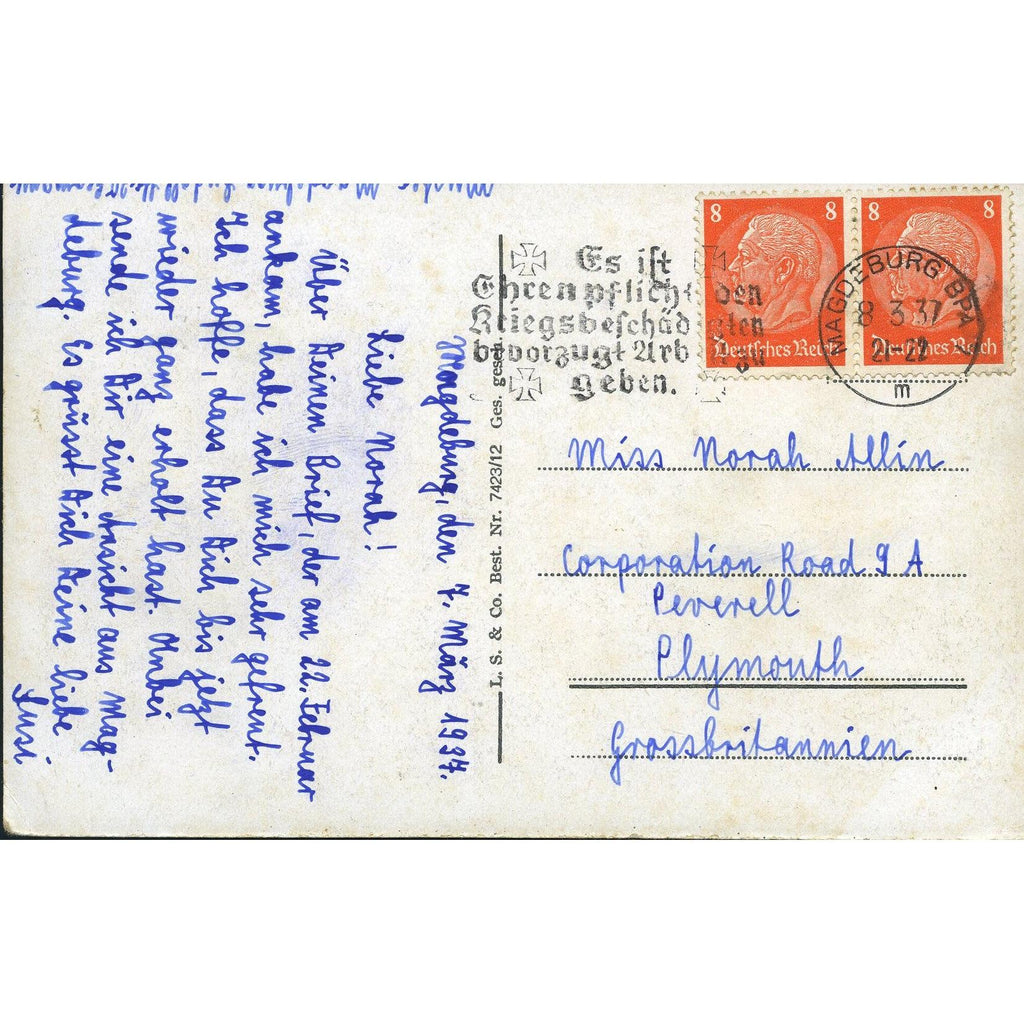 Magdeburg, den 7. März 1937.
Liebe Norah!
Über Deinen Brief, der am 22. Februar
ankam, habe ich mich sehr gefreut.
Ich hoffe, dass Du Dich bis jetzt
wieder ganz erholt hast. Anbei
sende ich Dir eine Ansicht aus Mag-
deburg. Es grüsst Dich Deine liebe
Susi
Magdeburg
L. S. & Co. Best. Nr. 7423/12 Ges. gesch.
Es ist
Ehrenpflicht den
Kriegsbeschädigten
bevorzugt Arbeit
geben.
8 8 8 8
Deutsches Reich Deutsches Reich
MAGDEBURG BPA
8 3.37
21-22
m
Miss Norah Allin
Corporation Road 9 A
Peverell
Plymouth
Grossbritannien.